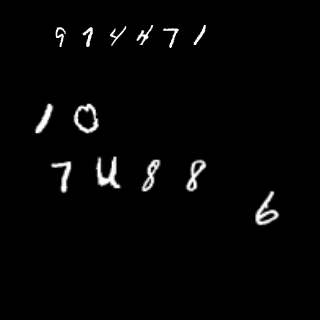 974471
10
7488
6